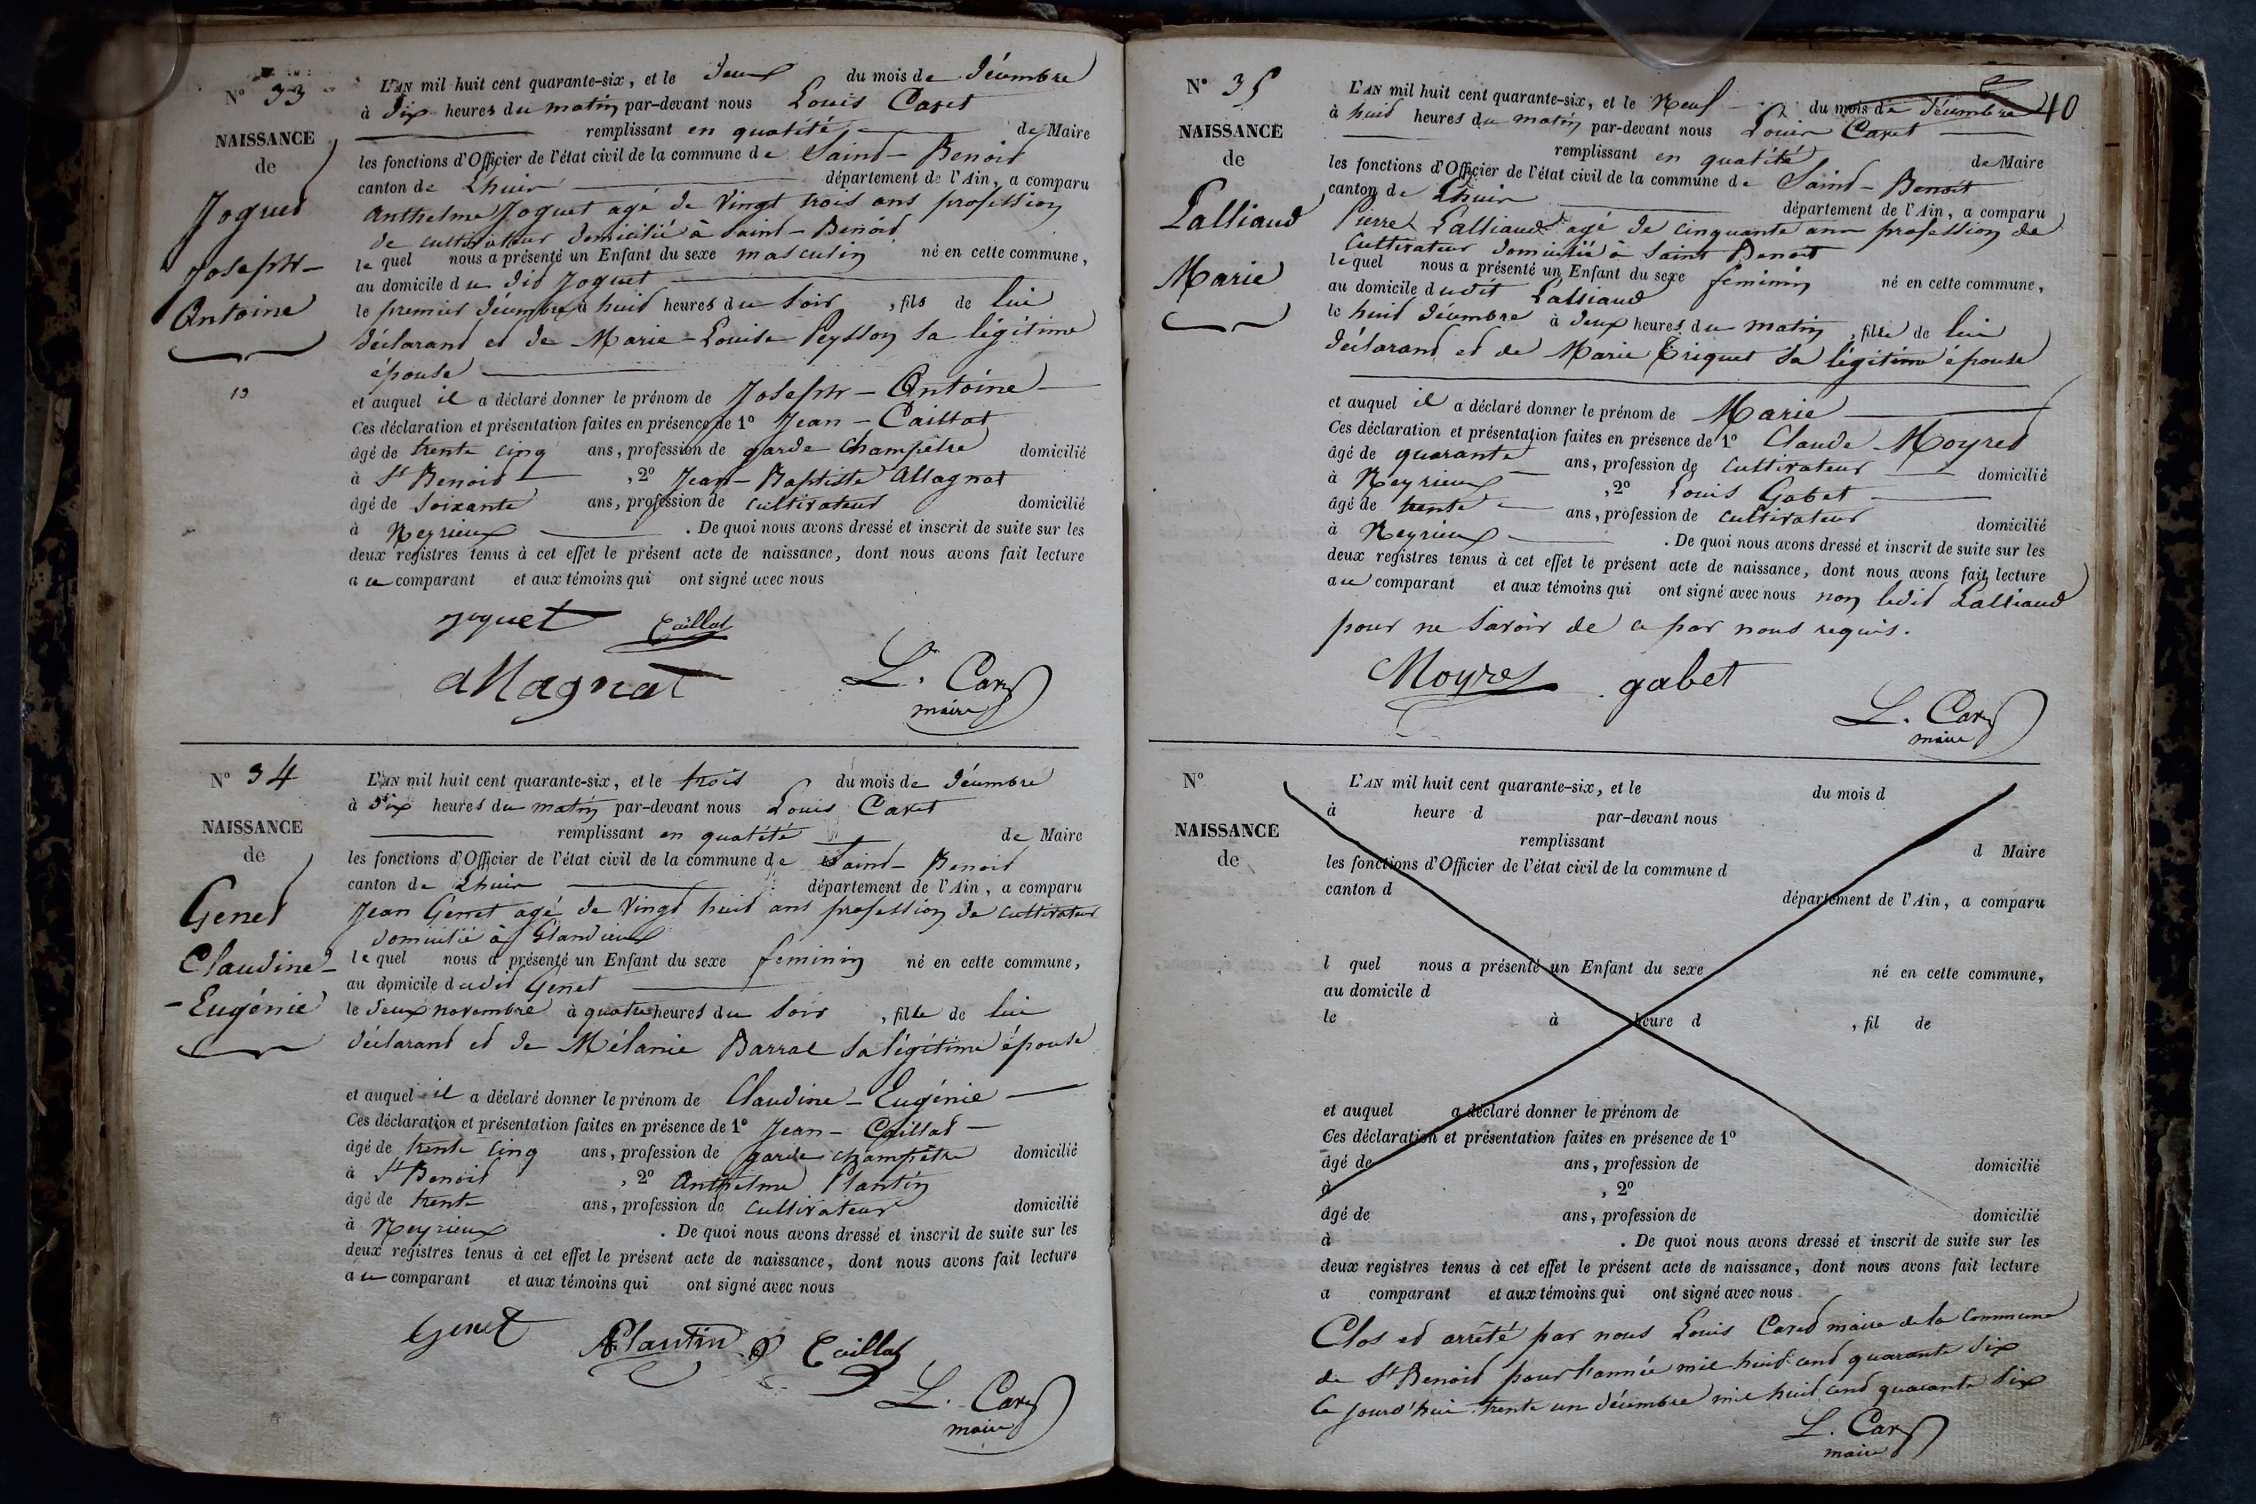 N° 33
NAISSANCE
de
Joguet
Joseph-
Antoine
13
L'AN mil huit cent quarante-six, et le deux du mois de décembre
à dix heures du matin par-devant nous Louis Caret
remplissant en qualité de Maire
les fonctions d'Officier de l'état civil de la commune de Saint-Benoit
canton de Lhuis département de l'Ain, a comparu
Anthelme Joguet agé de vingt trois ans profession
de cultivateur domicilié à Saint-Benoit
le quel nous a présenté un Enfant du sexe masculin né en cette commune,
au domicile du dit Joguet
le premier décembre à huit heures du soir, fils de lui
déclarant et de Marie-Louise Peysson sa légitime
épouse
et auquel il a déclaré donner le prénom de Joseph-Antoine
Ces déclaration et présentation faites en présence de 1° Jean-Caillat
âgé de trente cinq ans, profession de garde champêtre domicilié
à St Benoit, 2° Jean-Baptiste Allagnat
âgé de soixante ans, profession de cultivateur domicilié
à Neyrieux. De quoi nous avons dressé et inscrit de suite sur les
deux registres tenus à cet effet le présent acte de naissance, dont nous avons fait lecture
au comparant et aux témoins qui ont signé avec nous
joguet Caillat
allagnat L. Caret
maire
N° 34
NAISSANCE
de
Genet
Claudine-
-Eugénie
L'AN mil huit cent quarante-six, et le trois du mois de décembre
à dix heures du matin par-devant nous Louis Caret
remplissant en qualité de Maire
les fonctions d'Officier de l'état civil de la commune de Saint-Benoit
canton de Lhuis département de l'Ain, a comparu
Jean Genet agé de vingt huit ans profession de cultivateur
domicilié à Glandieux
le quel nous a présenté un Enfant du sexe feminin né en cette commune,
au domicile dudit Genet
le deux novembre à quatre heures du soir, fille de lui
déclarant et de Mélanie Barral sa légitime épouse
et auquel il a déclaré donner le prénom de Claudine-Eugénie
Ces déclaration et présentation faites en présence de 1° Jean-Caillat
âgé de trente cinq ans, profession de garde champêtre domicilié
à St Benoit, 2° Anthelme Plantin
âgé de trente ans, profession de cultivateur domicilié
à Neyrieux. De quoi nous avons dressé et inscrit de suite sur les
deux registres tenus à cet effet le présent acte de naissance, dont nous avons fait lecture
au comparant et aux témoins qui ont signé avec nous
Genet APlantin Caillat
L. Caret
maire
40
N° 35
NAISSANCE
de
Lalliaud
Marie
L'AN mil huit cent quarante-six, et le neuf du mois de décembre
à huit heures du matin par-devant nous Louis Caret
remplissant en qualité de Maire
les fonctions d'Officier de l'état civil de la commune de Saint-Benoit
canton de Lhuis département de l'Ain, a comparu
Pierre Lalliaud agé de cinquante ans profession de
cultivateur domicilié à Saint Benoit
le quel nous a présenté un Enfant du sexe feminin né en cette commune,
au domicile dudit Lalliaud
le huit décembre à deux heures du matin, fille de lui
déclarant et de Marie Triquet sa légitime épouse
et auquel il a déclaré donner le prénom de Marie
Ces déclaration et présentation faites en présence de 1° Claude Moyret
âgé de quarante ans, profession de cultivateur domicilié
à Neyrieux, 2° Louis Gabet
âgé de trente ans, profession de cultivateur domicilié
à Neyrieux. De quoi nous avons dressé et inscrit de suite sur les
deux registres tenus à cet effet le présent acte de naissance, dont nous avons fait lecture
au comparant et aux témoins qui ont signé avec nous non ledit Lalliaud
pour ne savoir de ce par nous requis.
Moyret gabet
L. Caret
maire
N°
NAISSANCE
de
L'AN mil huit cent quarante-six, et le du mois d
à heure d par-devant nous
remplissant d Maire
les fonctions d'Officier de l'état civil de la commune d
canton d département de l'Ain, a comparu
l quel nous a présenté un Enfant du sexe né en cette commune,
au domicile d
le à heure d, fil de
et auquel a déclaré donner le prénom de
Ces déclaration et présentation faites en présence de 1°
âgé de ans, profession de domicilié
à, 2°
âgé de ans, profession de domicilié
à. De quoi nous avons dressé et inscrit de suite sur les
deux registres tenus à cet effet le présent acte de naissance, dont nous avons fait lecture
a comparant et aux témoins qui ont signé avec nous
Clos et arrêté par nous Louis Caret maire de la commune
de St Benoit pour l'année mil huit cent quarante six
ce jourd'hui trente un décembre mil huit cent quarante six
L. Caret
maire